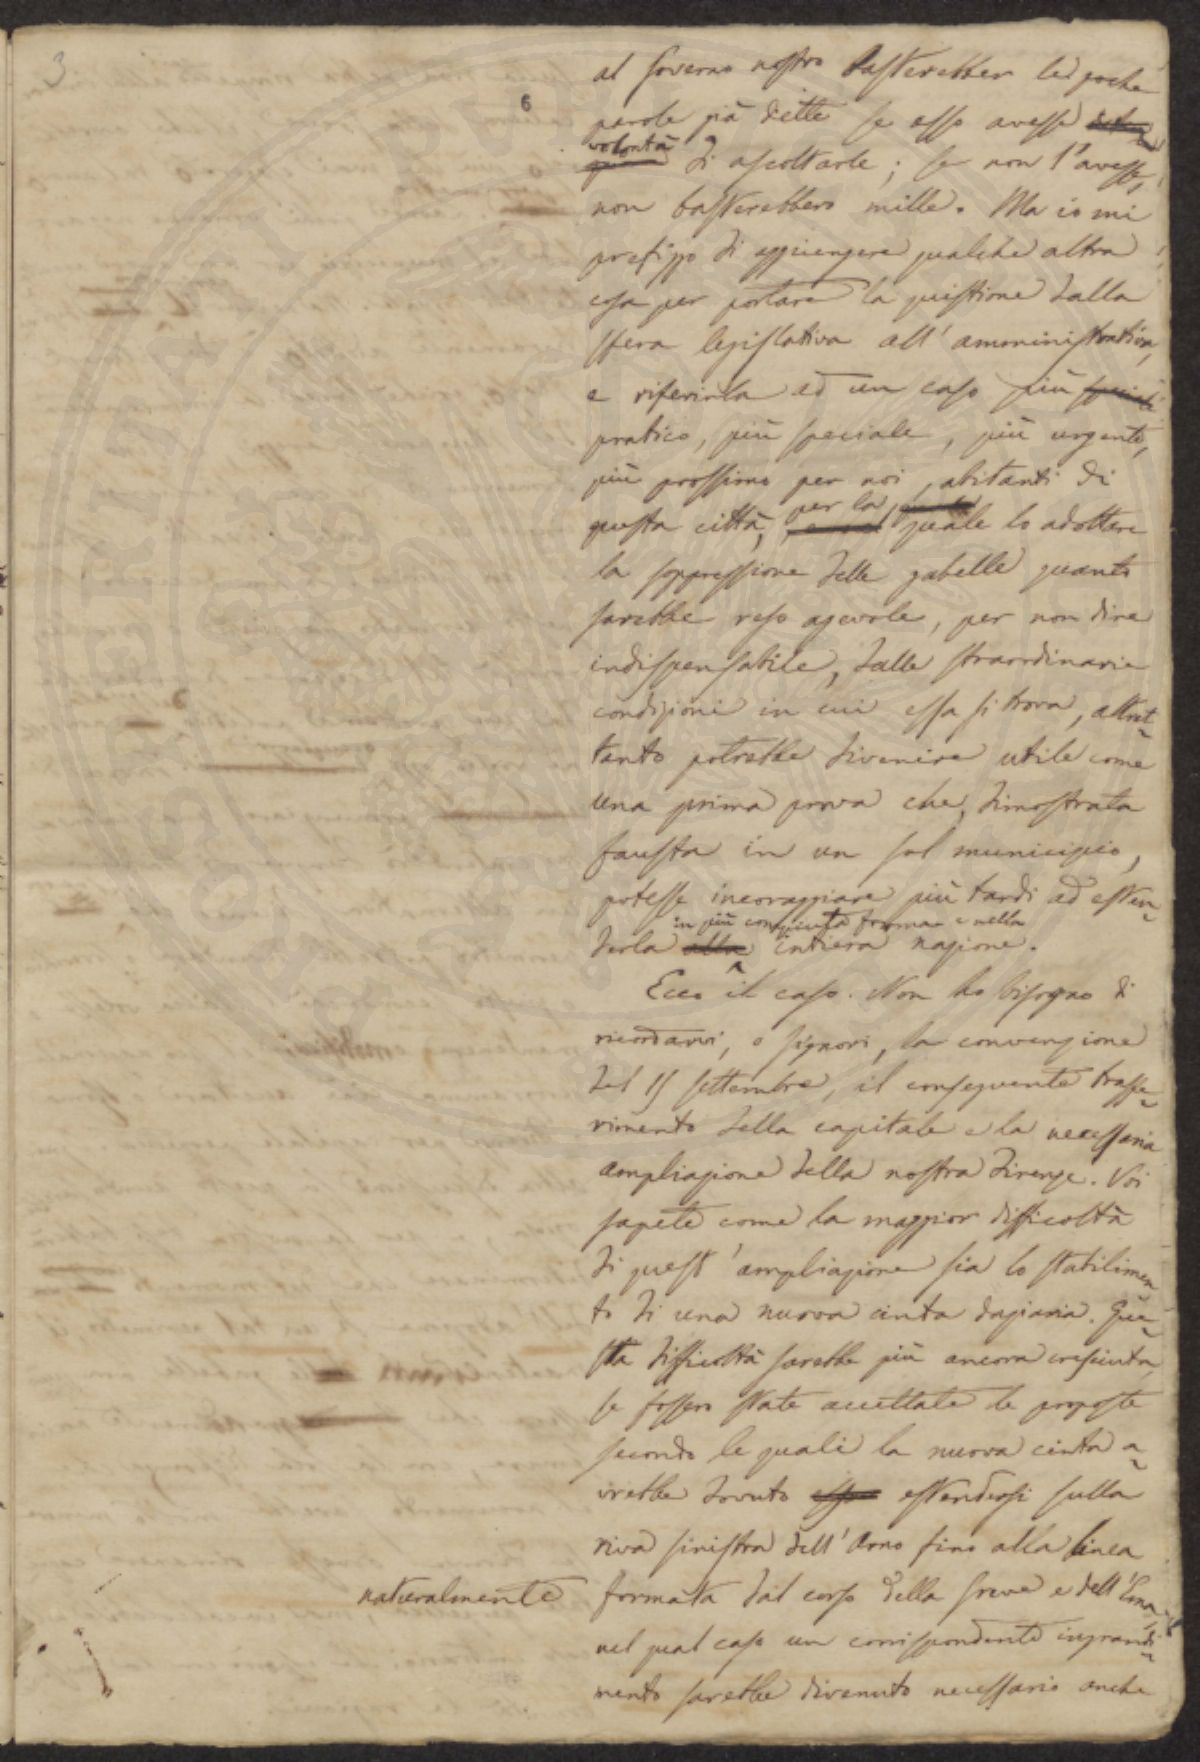 3
6
al Governo nostro basterebber le poche
parole già dette se esso avesse
volontà di ascoltarle; se non l'avesse,
non basterebbero mille. Ma io mi
prefiggo di aggiungere qualche altra
cosa per portare la quistione dalla
sfera legislativa all'amministrativa,
e riferirla ad un caso più speciale
pratico, più speciale, più urgente,
più prossimo per noi, abitanti di
questa città, per la quale lo adottare
la soppressione delle gabelle quanto
sarebbe reso agevole, per non dire
indispensabile, dalle straordinarie
condizioni in cui essa si trova, altret-
tanto potrebbe divenire utile come
una prima prova che, dimostrata
fausta in un sol municipio,
potesse incoraggiare più tardi ad esten-
in più compiuta forma e nella
derla alla intiera nazione.
Ecco il caso. Non ho bisogno di
ricordarvi, o signori, la convenzione
del 15 settembre, il conseguente trasfe-
rimento della capitale e la necessaria
ampliazione della nostra Firenze. Voi
sapete come la maggior difficoltà
di quest'ampliazione sia lo stabilimen-
to di una nuova cinta daziaria. Que-
sta difficoltà sarebbe più ancora cresciuta,
se fossero state accettate le proposte
secondo le quali la nuova cinta a-
vrebbe dovuto estendersi sulla
riva sinistra dell'Arno fino alla linea
naturalmente formata dal corso della Greve e dell'Ema,
nel qual caso un corrispondente ingrandi-
mento sarebbe divenuto necessario anche